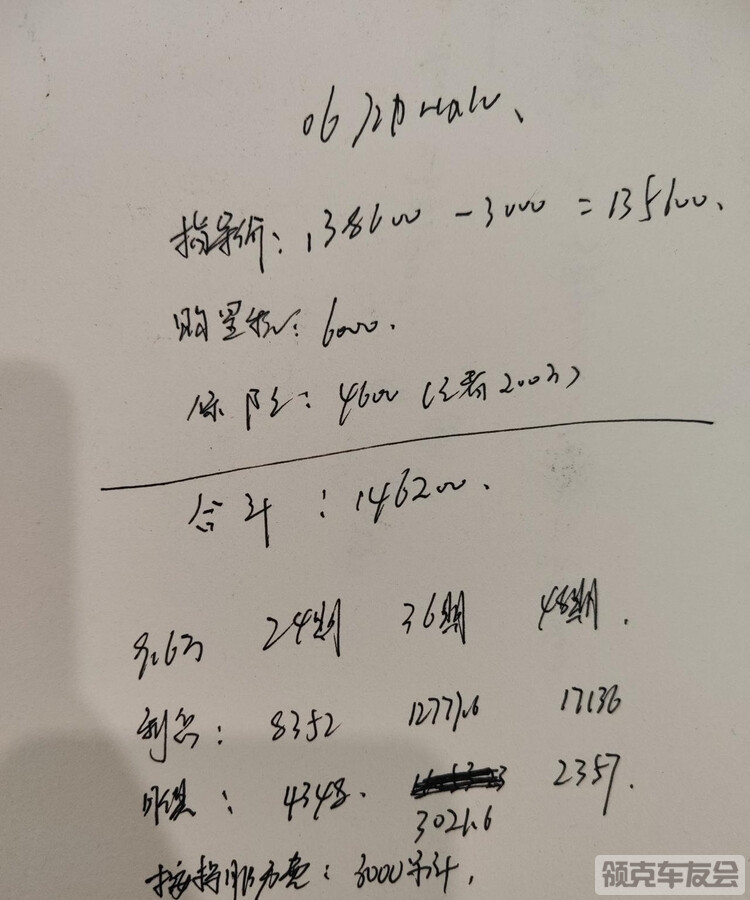 06 Halo、
指导价: 138600 - 3000 = 135600.
购置税: 6000.
保险: 4600 (三者200万)
合计: 146200.
9.6万 24期 36期 48期.
利息: 8352 12777.6 17136
月供: 4348. 3021.6 2357.
按揭服务费: 3000
领克车友会